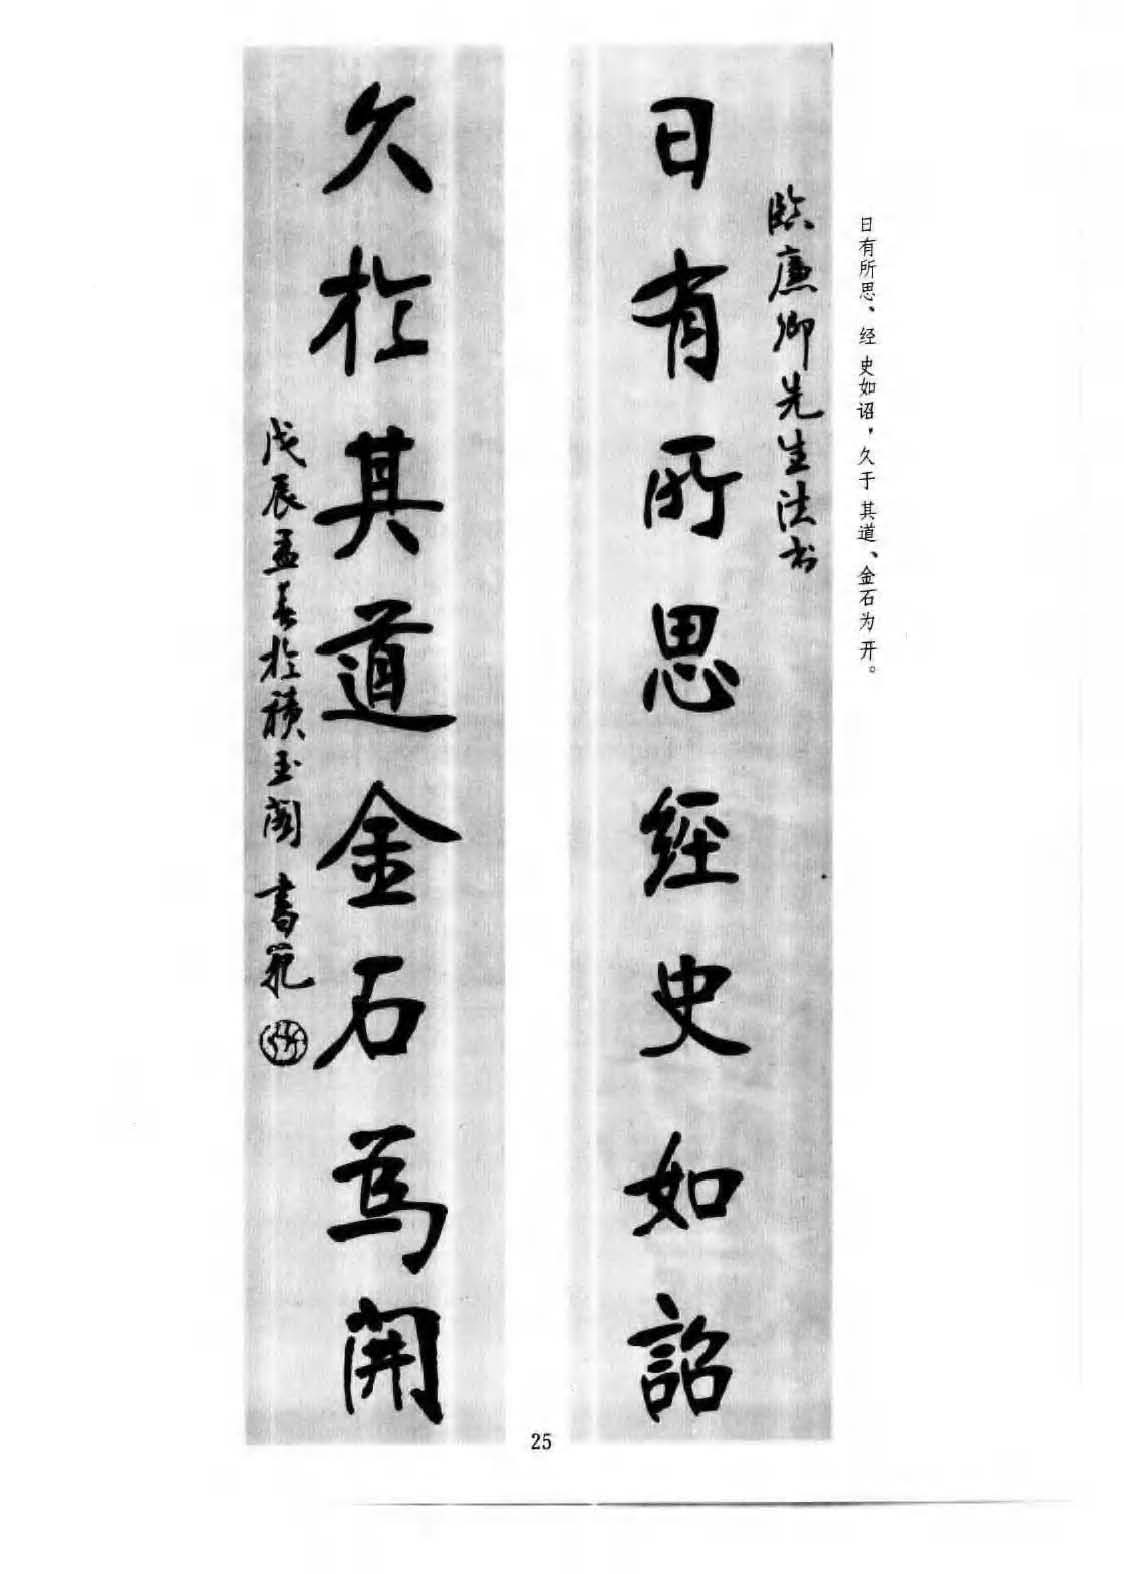 日有所思、经史如诏，久于其道、金石为开。
临廉卿先生法书
日有所思經史如詔
久於其道金石為開
戊辰孟春於積玉阁 書範
25